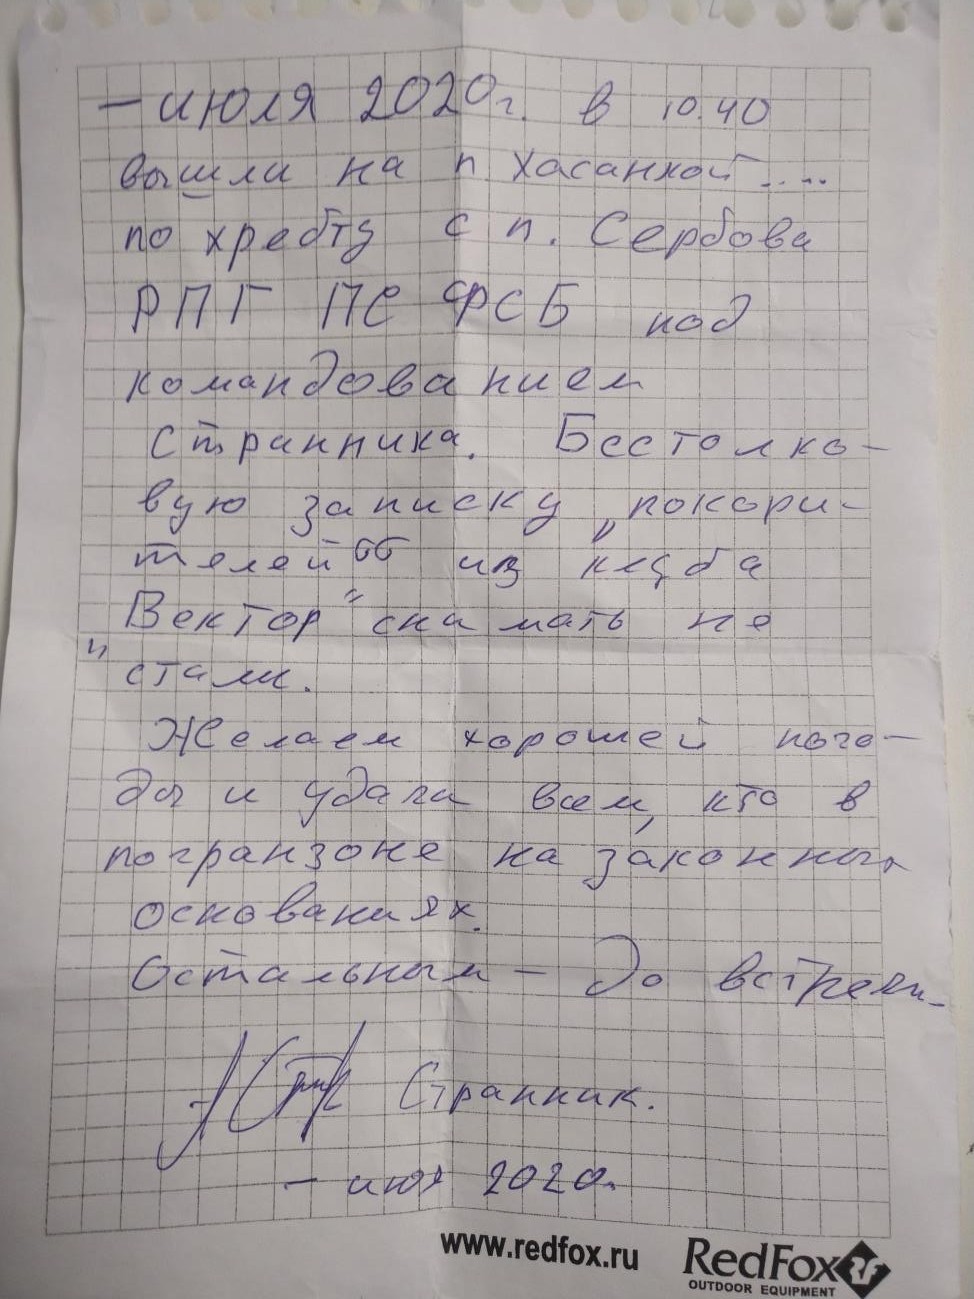 — июля 2020г. в 10.40
вышли на п Хасанкой....
по хребту с п. Сербова
РПГ ПС ФСБ под
командованием
Странника. Бестолко-
вую записку „покори-
телей“ из клуба
"Вектор" снимать не
стали.
Желаем хорошей пого-
ды и удачи всем, кто в
погранзоне на законных
основаниях.
Остальным — До встречи.
Странник.
— июл 2020г.
www.redfox.ru
RedFox
OUTDOOR EQUIPMENT